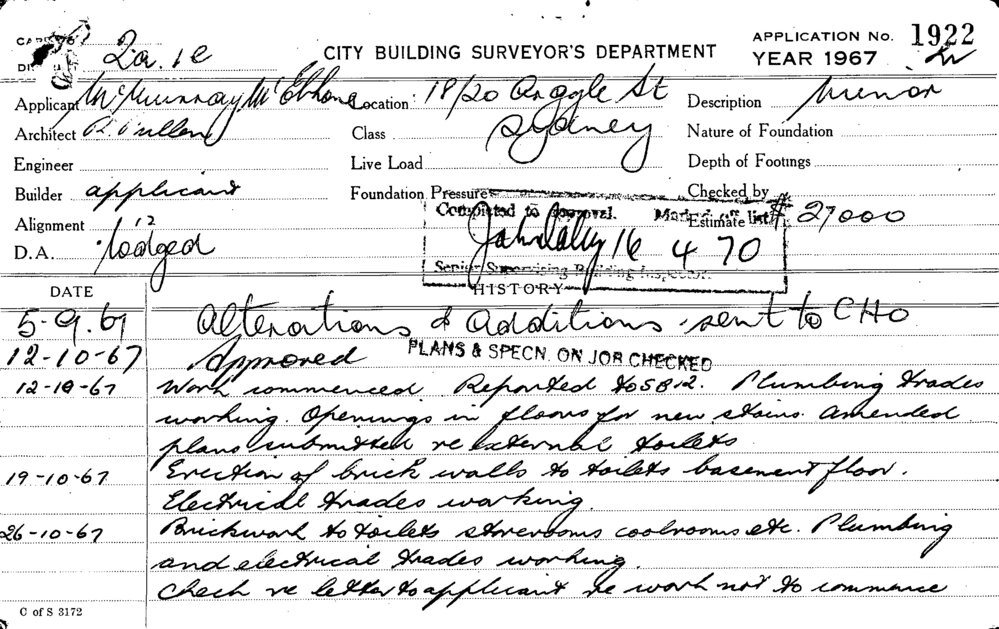 CITY BUILDING SURVEYOR'S DEPARTMENT
APPLICATION No. 1922
YEAR 1967
2a. 1e
Applicant McMurray McElhone Location: 18/20 Argyle St Description Minor
Architect R. Pullen Class Sydney Nature of Foundation
Engineer Live Load Depth of Footings
Builder applicant Foundation Pressure Checked by
Alignment 1'2 Estimate $ 27000
D.A. lodged
Completed to approval. Marked off list
16 4 70
Senior Supervising Building Inspector.
DATE HISTORY
5-9.67 Alterations & additions sent to CHO
12-10-67 Approved PLANS & SPECN. ON JOB CHECKED
12-10-67 Work commenced. Reported to SB12. Plumbing trades
working. Openings in floors for new stairs. Amended
plans submitted re external toilets
19-10-67 Erection of brick walls to toilets basement floor.
Electrical trades working.
26-10-67 Brickwork to toilets storerooms coolrooms etc. Plumbing
and electrical trades working.
Check re letter to applicant re work not to commence
C of S 3172